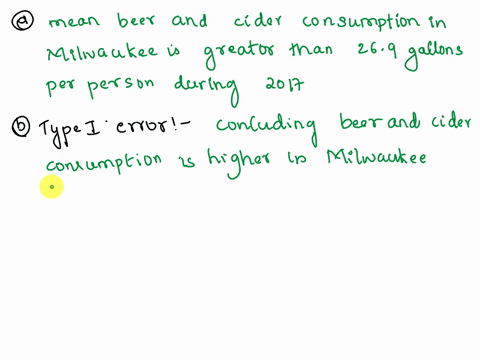 ⓐ mean beer and cider consumption in
Milwaukee is greater than 26.9 gallons
per person during 2017
ⓑ Type I error!- concluding beer and cider
consumption is higher in Milwaukee